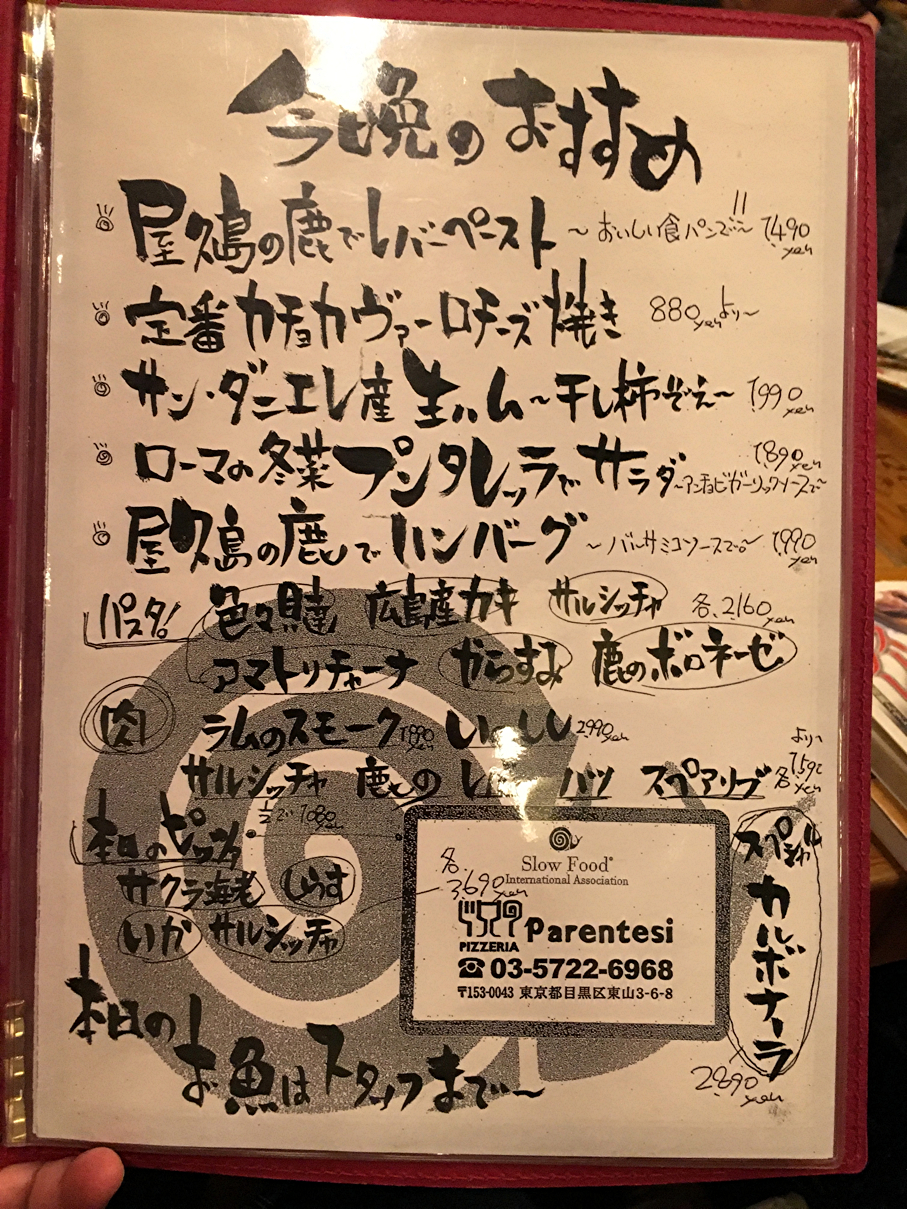 今晩のおすすめ
屋久島の鹿でレバーペースト ～おいしい食パンで～!! 1,490yen
定番カチョカヴァーロチーズ焼き 880yenより～
サン・ダニエレ産生ハム～干し柿ぞえ～ 1,990yen
ローマの冬菜プンタレッラでサラダ ～アンチョビガーリックソースで～ 1,890yen
屋久島の鹿でハンバーグ ～バルサミコソースで。～ 1,990yen
パスタ! 色々貝達 広島産カキ サルシッチャ 各、2,160yen
アマトリチャーナ からすみ 鹿のボロネーゼ
肉 ラムのスモーク 1,890yen 2,990yen
サルシッチャ 鹿の ハツ スペアリブ 各1,590より～
本日のピッツァ 1/2で 1,080yen
サクラ海老 しらす
いか サルシッチャ 各3,690yen
Slow Food®
International Association
PIZZERIA Parentesi
☎ 03-5722-6968
〒153-0043 東京都目黒区東山3-6-8
スペシャル
カルボナーラ
2,890yen
本日の
お魚はスタッフまで～